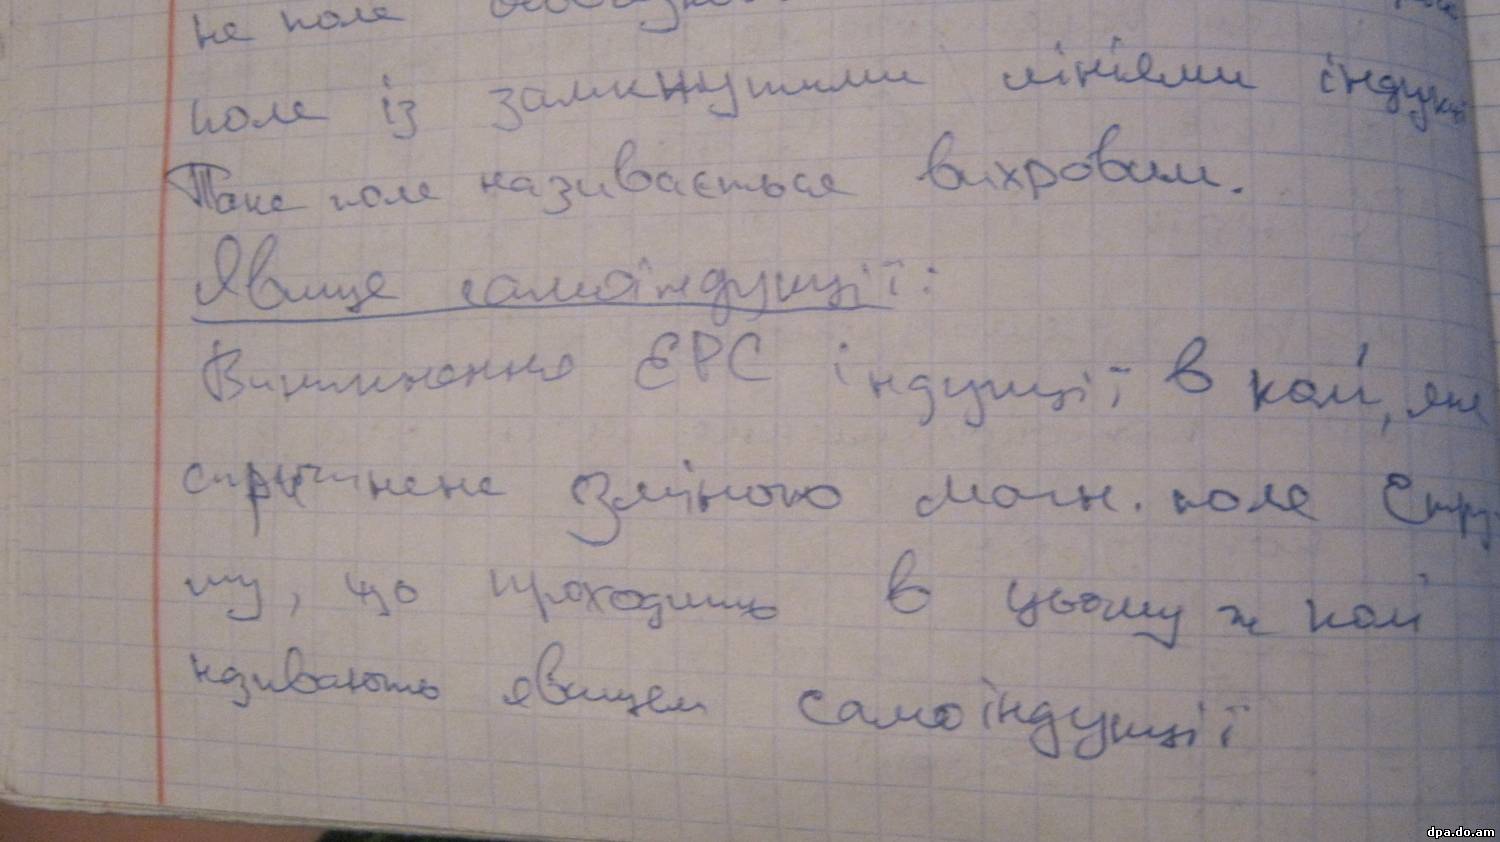 не поле
поле із замкнутими лініями індукц
Таке поле називається вихровим.
Явище самоіндукції:
Виникнення ЕРС індукції в колі, яке
спричинене зміною магн. поля стру-
му, що проходить в цьому ж колі
називають явищем самоіндукції
dpa.do.am